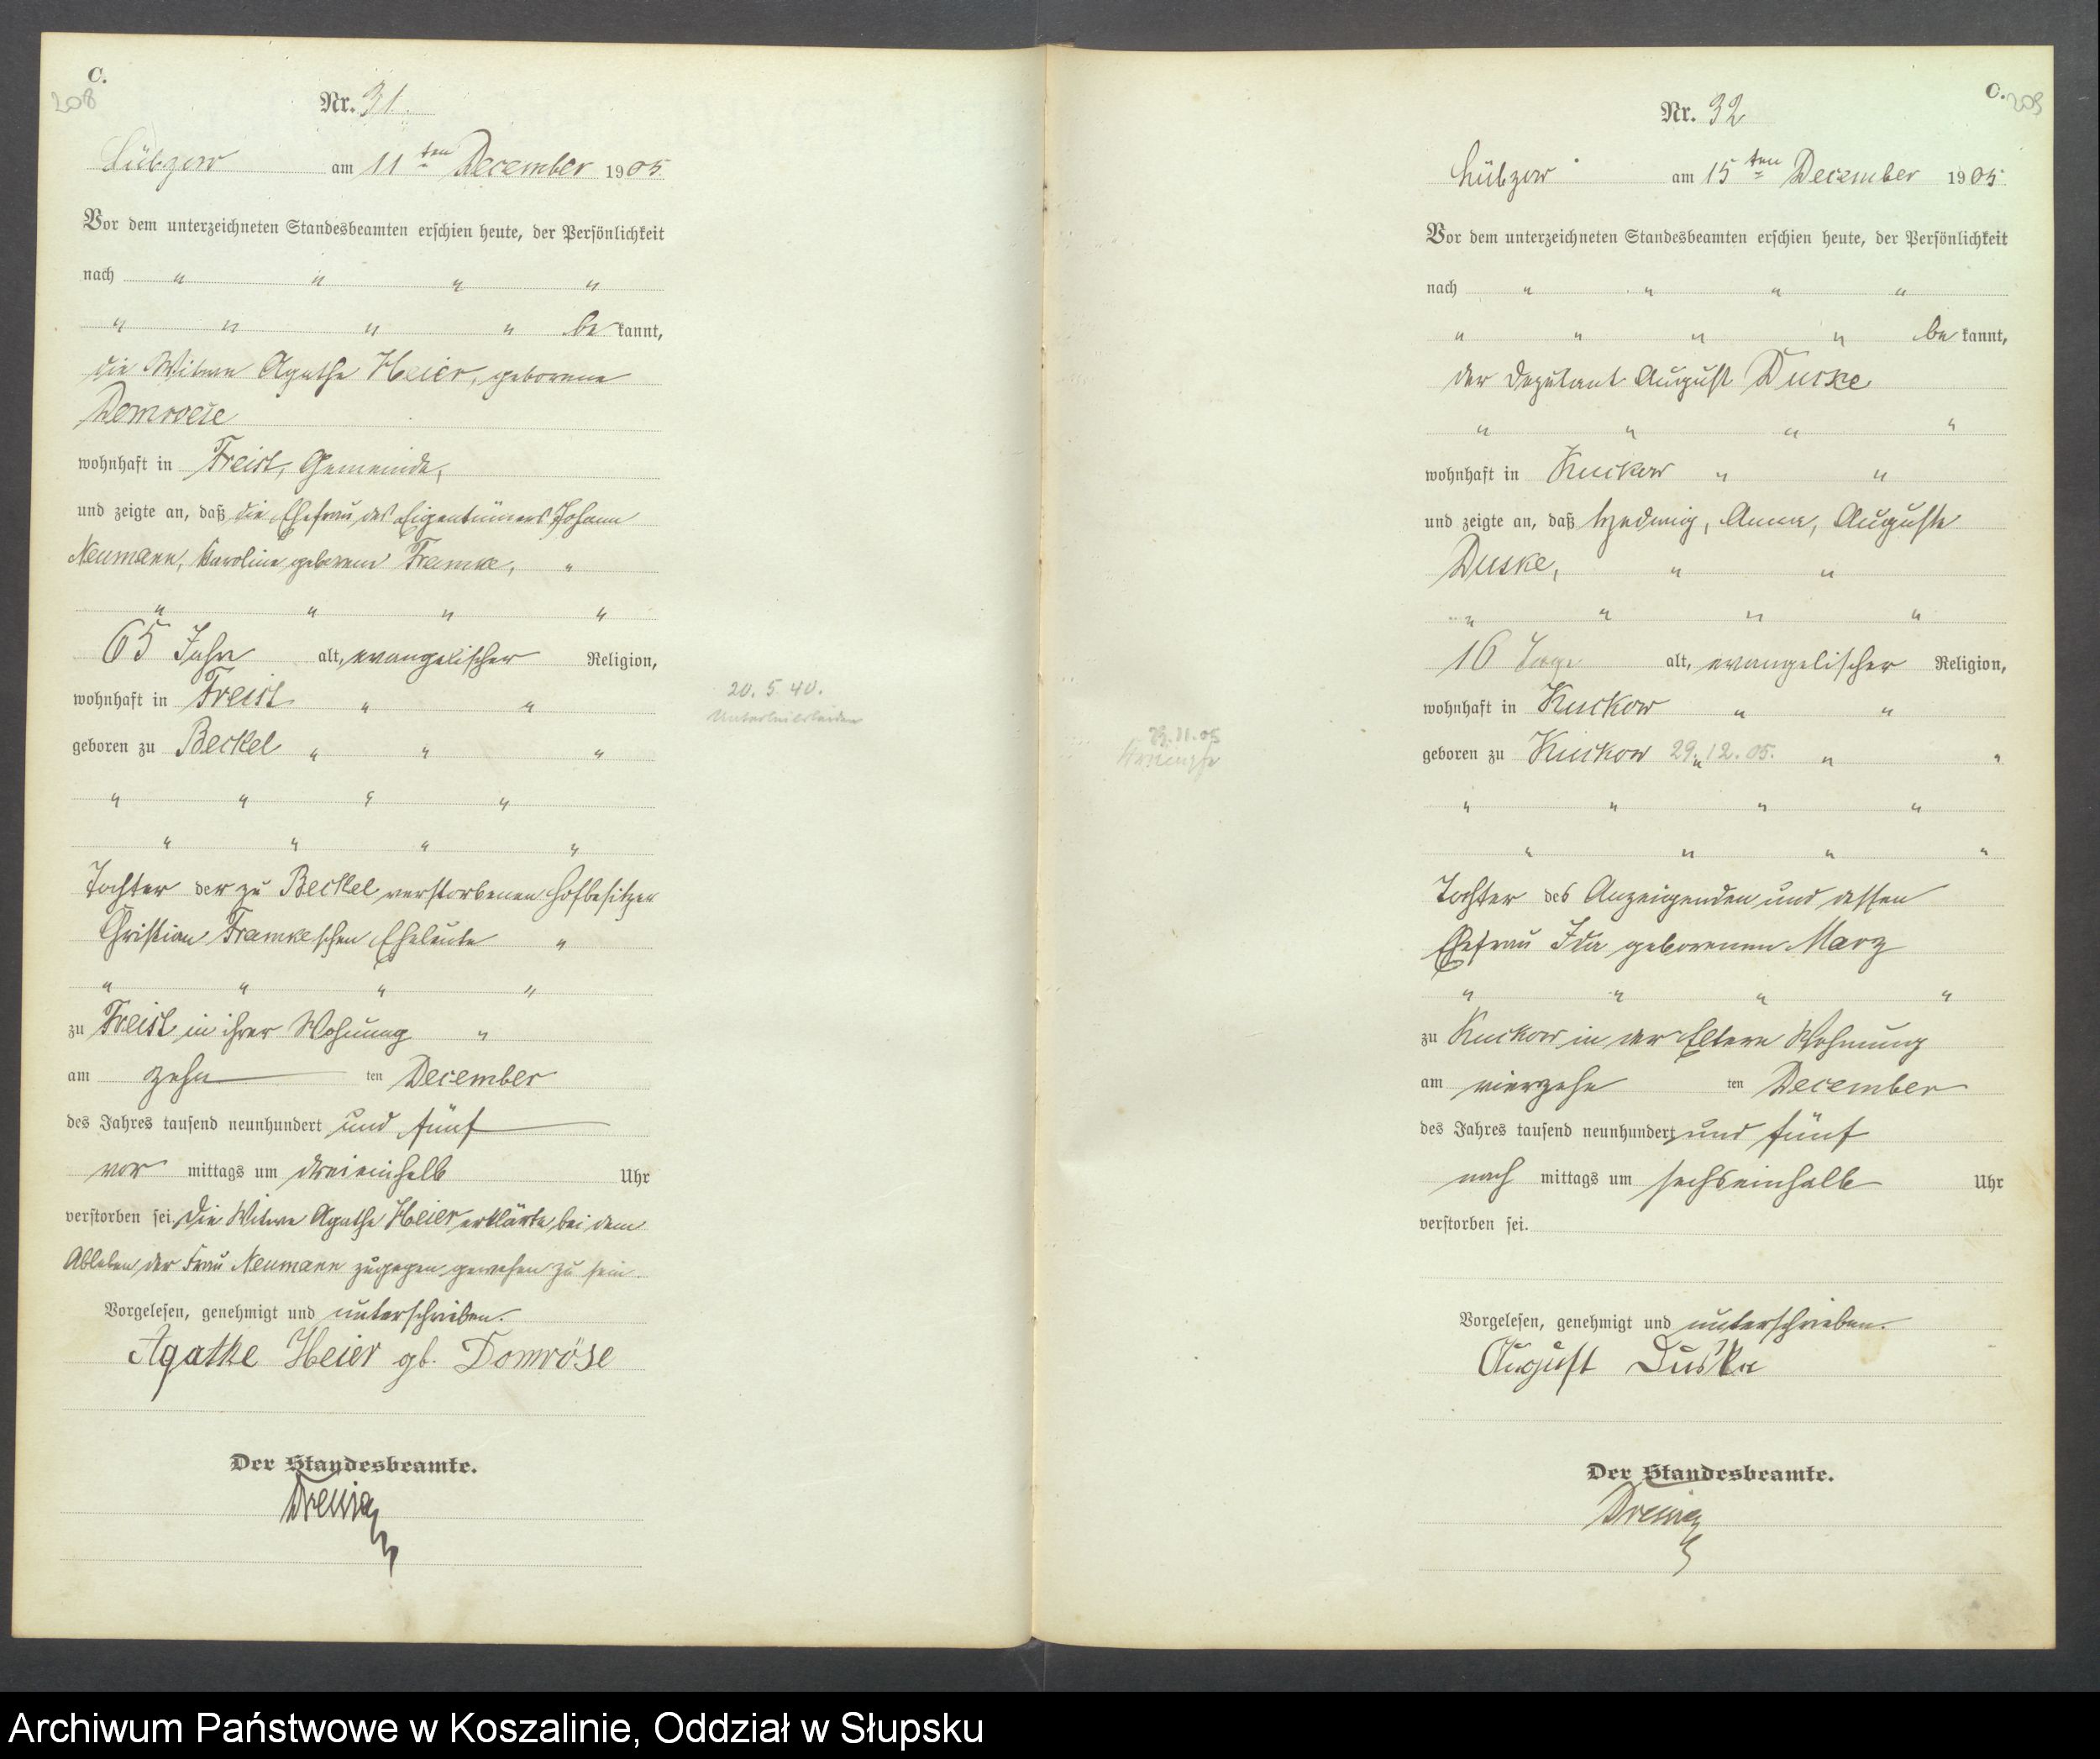 C.
208
Nr. 31.
Lübzow am 11ten December 1905.
Vor dem unterzeichneten Standesbeamten erschien heute, der Persönlichkeit
nach " " " "
" " " " bekannt,
die Witwe Agathe Heier, geborene
Domroese
wohnhaft in Freist, Gemeinde,
und zeigte an, daß die Ehefrau des Eigentümers Johann
Neumann, Karoline geborene Framke, "
" " " "
65 Jahre alt, evangelischer Religion,
wohnhaft in Freist " "
geboren zu Beckel " " "
" " " "
" " " "
Tochter der zu Beckel verstorbenen Hofbesitzer
Christian Framkeschen Eheleute "
" " " "
zu Freist in ihrer Wohnung "
am zehn ten December
des Jahres tausend neunhundert und fünf
vor mittags um dreieinhalb Uhr
verstorben sei. Die Witwe Agathe Heier erklärte, bei dem
Ableben der Frau Neumann zugegen gewesen zu sein.
Vorgelesen, genehmigt und unterschrieben.
Agathe Heier gb. Domröse
Der Standesbeamte.
20. 5. 40.
Unterleibsleiden
C.
209
Nr. 32
Lübzow am 15ten December 1905.
Vor dem unterzeichneten Standesbeamten erschien heute, der Persönlichkeit
nach " " " "
" " " " bekannt,
der Deputant August Duske
" " " "
wohnhaft in Kuckow " "
und zeigte an, daß Hedwig, Anna, Auguste
Duske, " "
" " " "
16 Tage alt, evangelischer Religion,
wohnhaft in Kuckow " "
geboren zu Kuckow 29. 12. 05. " " "
" " " "
" " " "
Tochter des Anzeigenden und dessen
Ehefrau Ida geborenen Marz
" " " "
zu Kuckow in der Eltern Wohnung
am vierzehn ten December
des Jahres tausend neunhundert und fünf
nach mittags um sechseinhalb Uhr
verstorben sei.
Vorgelesen, genehmigt und unterschrieben.
August Duske
Der Standesbeamte.
29.11.05
Krämpfe
Archiwum Państwowe w Koszalinie, Oddział w Słupsku